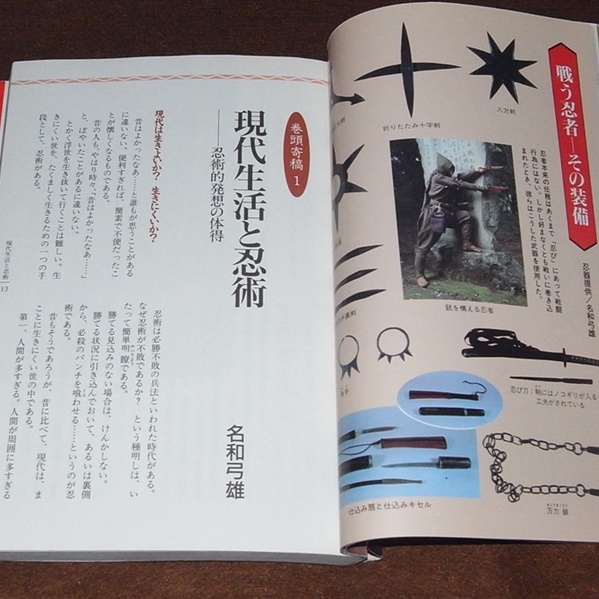 戦う忍者―その装備
忍者本来の任務はあくまで「忍び」にあって戦闘
行為にはない。しかし好まなくとも戦いに巻き込
まれたとき、彼らはこうした武器を使用した。
忍器提供／名和弓雄
六方剣
折りたたみ十字剣
銃を構える忍者
忍び刀：鞘にはノコギリが入る
工夫がされている
仕込み扇と仕込みキセル
万力鎖
巻頭寄稿1
現代生活と忍術
――忍術的発想の体得
名和弓雄
現代は生きよいか？ 生きにくいか？
昔はよかったなあ……と誰もが思うことがある
に違いない。便利すぎれば、簡素で不便だったこ
とが懐しくなるものである。
昔の人も、やはり時々、「昔はよかったなあ……」
と、ぼやいたことがあるに違いない。
とかく浮世を生き抜いて行くことは難しい。生
きにくい世を、たくましく生きるための一つの手
段として、忍術がある。
忍術は必勝不敗の兵法といわれた時代がある。
なぜ忍術が不敗であるか？ という種明しは、い
たって簡単明瞭である。
勝てる見込みのない場合は、けんかしない。
勝てる状況に引き込んでおいて、あるいは裏側
から、必殺のパンチを喰わせる……というのが忍
術である。
昔もそうであろうが、昔に比べて、現代は、ま
ことに生きにくい世の中である。
第一、人間が多すぎる。人間が周囲に多すぎる
現代生活と忍術
13